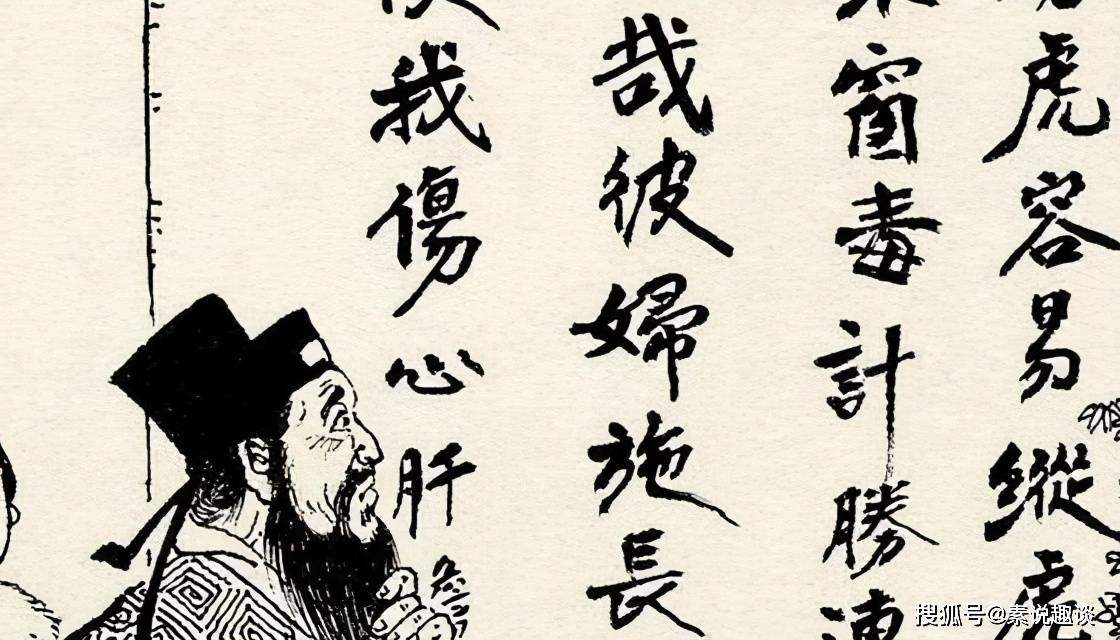 虎容易縱虎
窗毒計勝連
哉彼婦施長
我傷心肝
搜狐号@秦说趣谈